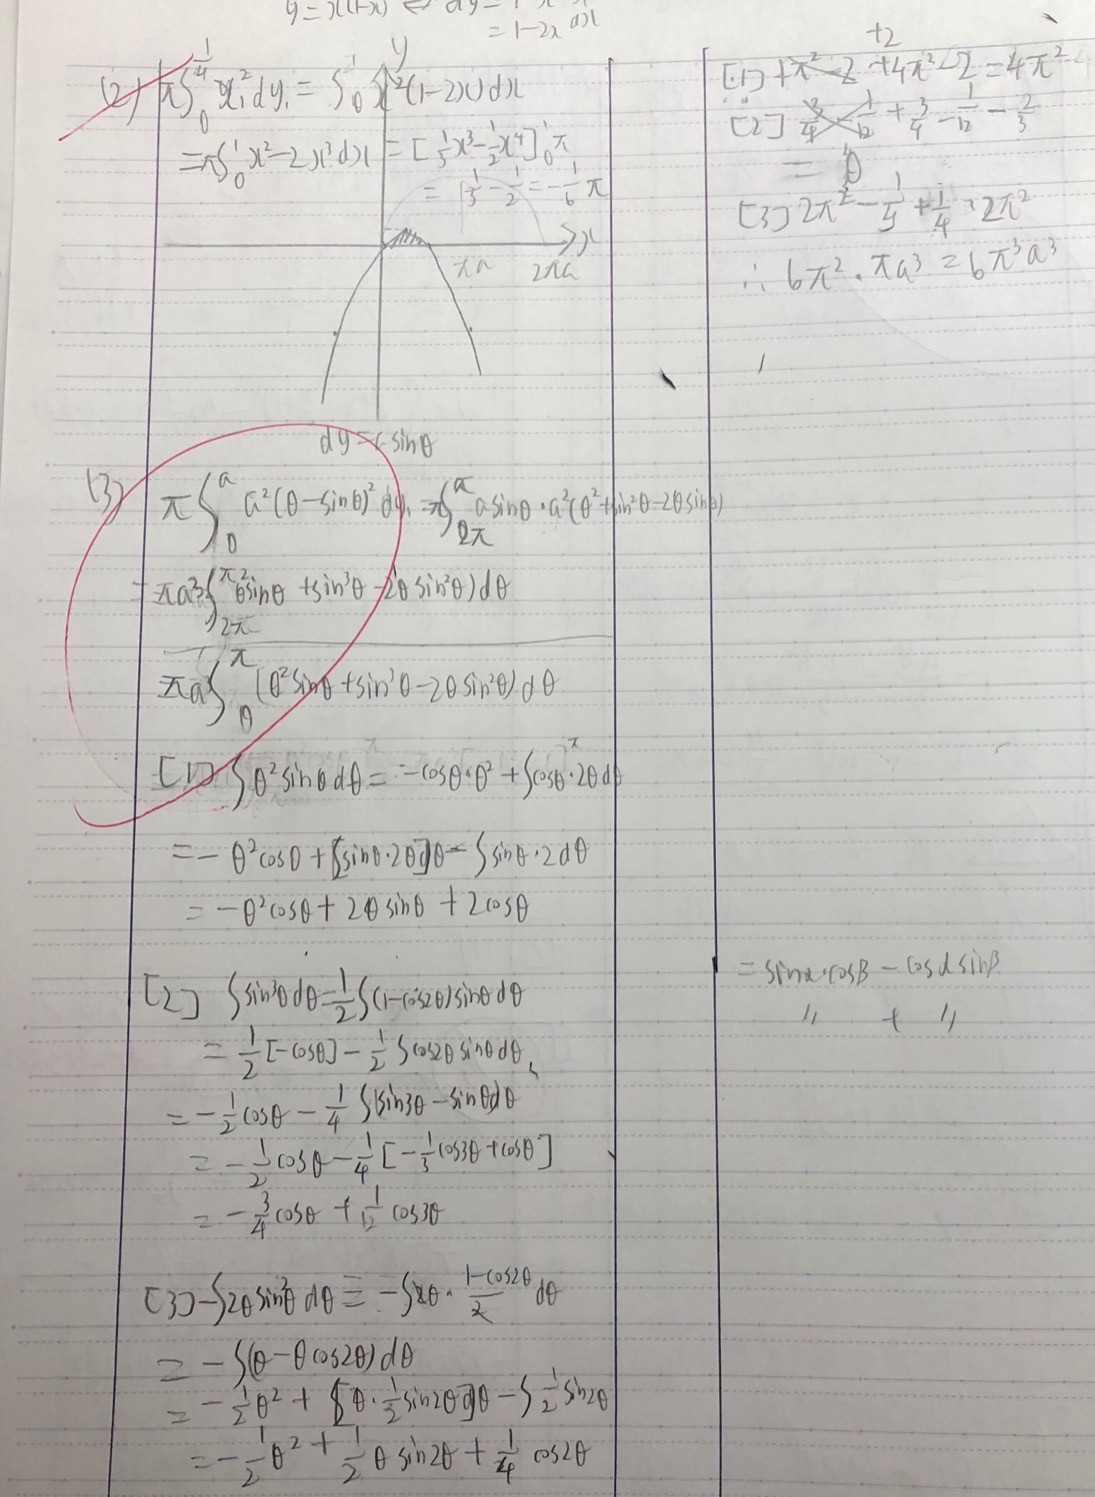 y = x(1-x) ⇔ dy =
= 1-2x dx
(2) π∫₀^{1/4} x₁² dy₁ = ∫₀¹ x²(1-2x) dx
= π∫₀¹ x²-2x³dx = [1/3 x³ - 1/2 x⁴]₀¹ π
= 1/3 - 1/2 = -1/6 π
y
x
πa 2πa
dy = a sinθ
(3) π∫₀^a a²(θ-sinθ)² dy₁ = π∫_{2π}^π a sinθ・a²(θ²+sin²θ-2θsinθ)
= πa³∫_{2π}^π θ²sinθ + sin³θ - 2θ sin²θ) dθ
πa³∫₀^π (θ²sinθ + sin³θ - 2θ sin²θ) dθ
[1] ∫θ² sinθ dθ = -cosθ・θ² + ∫cosθ・2θ dθ
= - θ²cosθ + [sinθ・2θ] - ∫sinθ・2dθ
= -θ²cosθ + 2θ sinθ + 2cosθ
[2] ∫sin³θ dθ = 1/2 ∫(1-cos2θ) sinθ dθ
= 1/2 [-cosθ] - 1/2 ∫cos2θ sinθ dθ
= -1/2 cosθ - 1/4 ∫(sin3θ - sinθ)dθ
= -1/2 cosθ - 1/4 [-1/3 cos3θ + cosθ]
= -3/4 cosθ + 1/12 cos3θ
[3] -∫2θ sin²θ dθ = -∫2θ・(1-cos2θ)/2 dθ
= -∫(θ - θcos2θ) dθ
= -1/2 θ² + [θ・1/2 sin2θ] - ∫1/2 sin2θ
= -1/2 θ² + 1/2 θ sin2θ + 1/4 cos2θ
+2
[1] +π²-2 +4π²-2 = 4π²
[2] 3/4 - 1/12 + 3/4 - 1/12 - 2/3
= 0
∴ 6π²・πa³ = 6π³a³
= sinα・cosβ - cosα sinβ
〃 + 〃